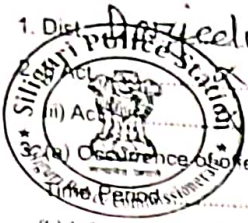 1. Dist. Darjeeli
Siliguri Police Station
2. Act
(ii) Act
3. (a) Occurrence of offe
Time Period